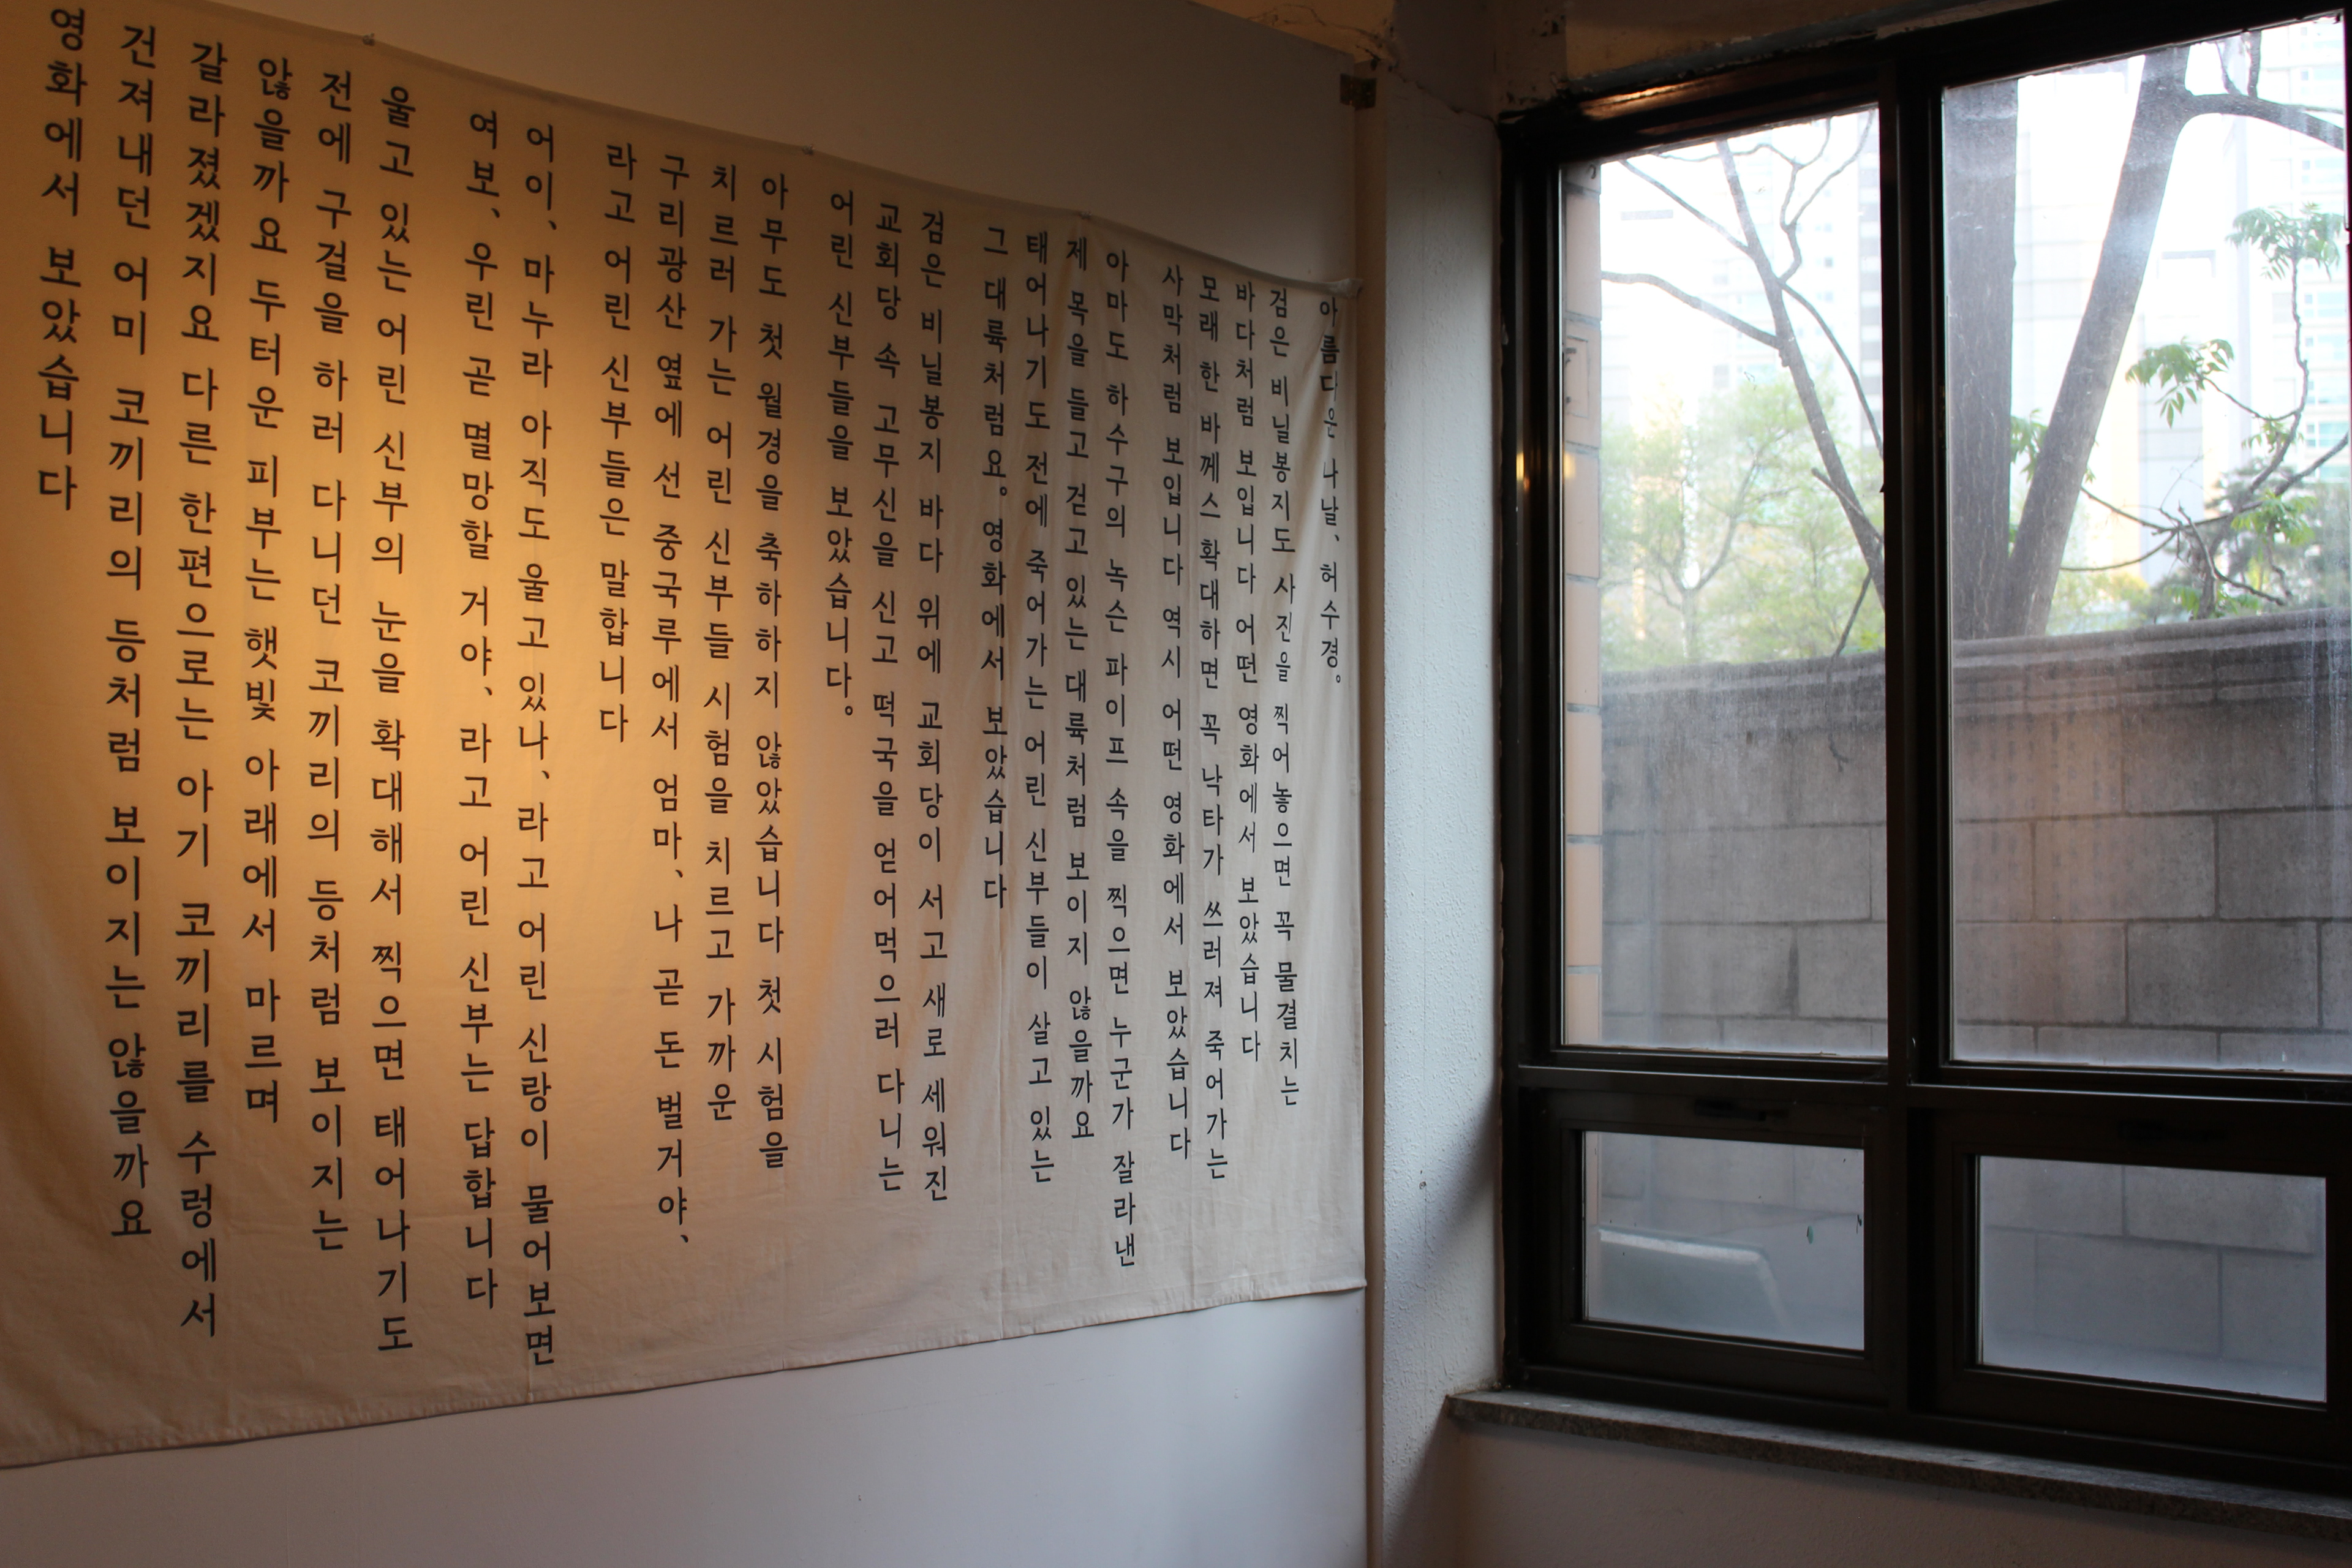 아름다운 나날、허수경。
검은 비닐봉지도 사진을 찍어놓으면 꼭 물결치는
바다처럼 보입니다 어떤 영화에서 보았습니다
모래 한 바께스 확대하면 꼭 낙타가 쓰러져 죽어가는
사막처럼 보입니다 역시 어떤 영화에서 보았습니다
아마도 하수구의 녹슨 파이프 속을 찍으면 누군가 잘라낸
제 목을 들고 걷고 있는 대륙처럼 보이지 않을까요
태어나기도 전에 죽어가는 어린 신부들이 살고 있는
그 대륙처럼요。영화에서 보았습니다
검은 비닐봉지 바다 위에 교회당이 서고 새로 세워진
교회당 속 고무신을 신고 떡국을 얻어먹으러 다니는
어린 신부들을 보았습니다。
아무도 첫 월경을 축하하지 않았습니다 첫 시험을
치르러 가는 어린 신부들 시험을 치르고 가까운
구리광산 옆에 선 중국루에서 엄마、나 곧 돈 벌거야、
라고 어린 신부들은 말합니다
어이、마누라 아직도 울고 있나、라고 어린 신랑이 물어보면
여보、우린 곧 멸망할 거야、라고 어린 신부는 답합니다
울고 있는 어린 신부의 눈을 확대해서 찍으면 태어나기도
전에 구걸을 하러 다니던 코끼리의 등처럼 보이지는
않을까요 두터운 피부는 햇빛 아래에서 마르며
갈라졌겠지요 다른 한편으로는 아기 코끼리를 수렁에서
건져내던 어미 코끼리의 등처럼 보이지는 않을까요
영화에서 보았습니다